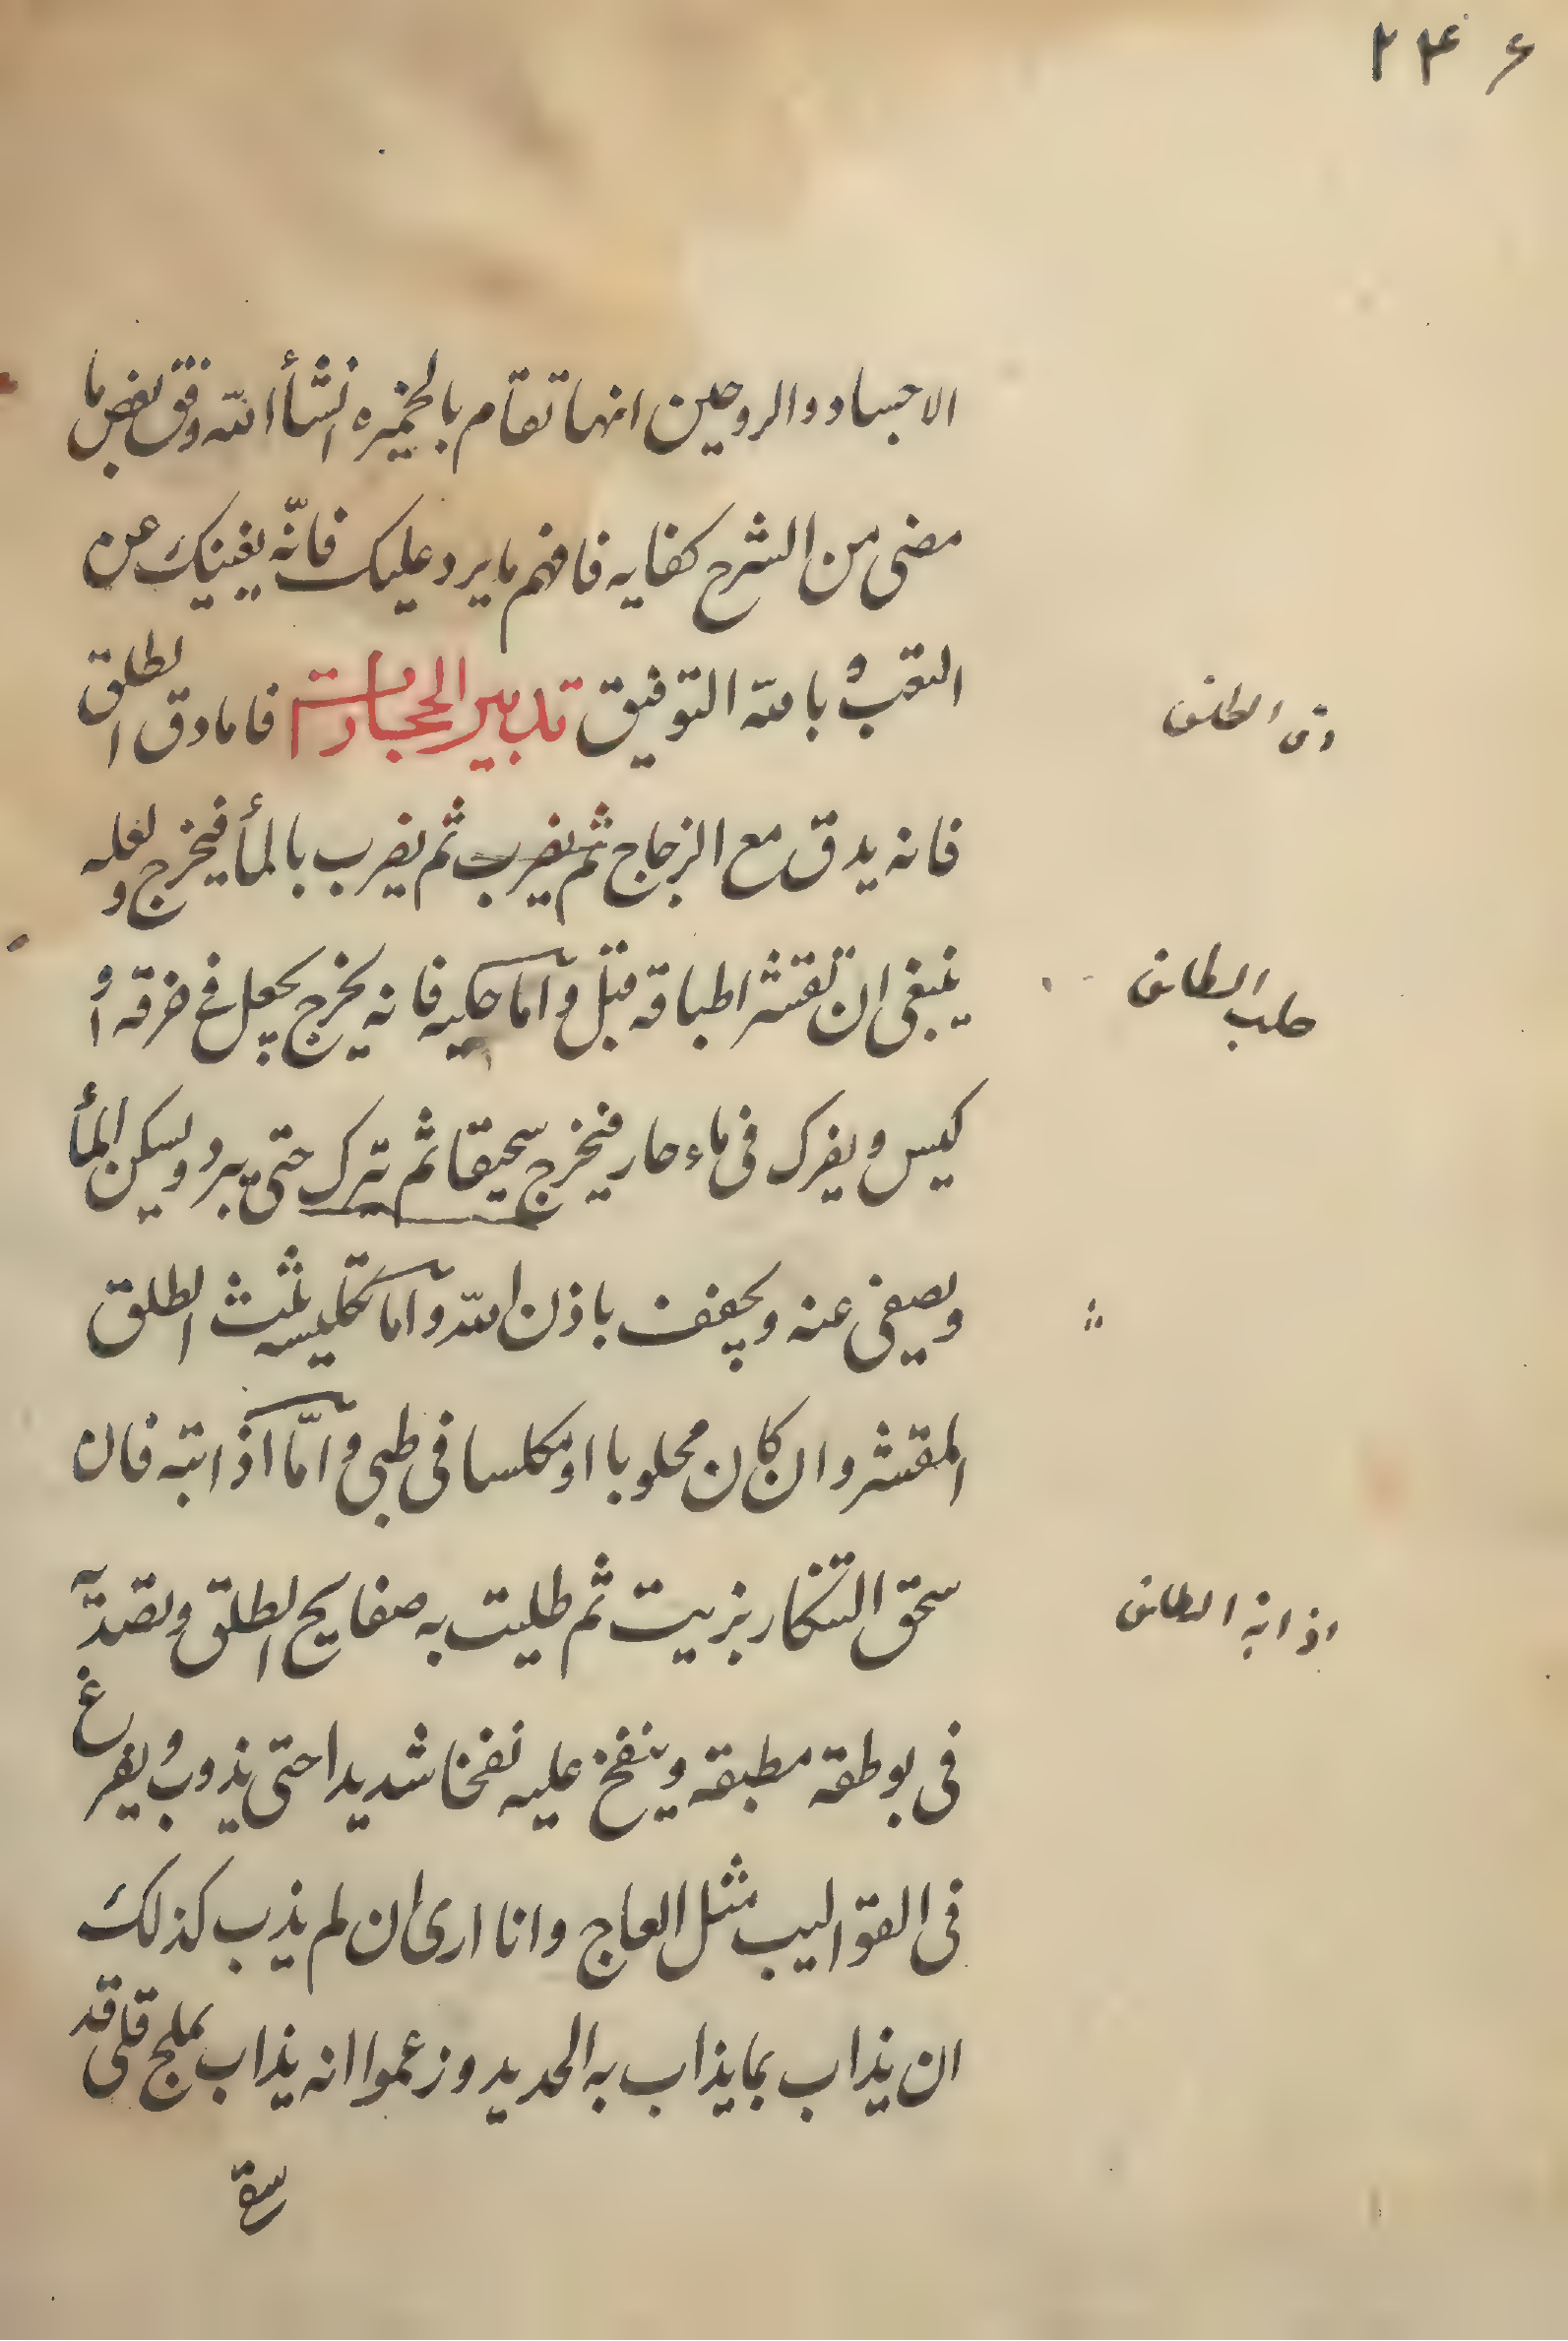 ۲۴۶
الاجساد والروحين انها تقام بالخميره انشأ الله وفى بعض ما
مضى من الشرح كفايه فافهم ما يرد عليك فانّه يغنيك عن
التعب وبالله التوفيق تدبير الحجارات فاما دق الطلق
دق الطلق
فانه يدق مع الزجاج ثم يضرب ثم يضرب بالمأ فيخرج ولعله
ينبغى ان تقشر اطباقه قبل واما حلبه فانه يخرج يجعل فى خرقه أو
حلب الطلق
كيس ويفرك فى ماء حار فيخرج سحيقا ثم يترك حتى يبرد ويسكن المأ
ويصفى عنه ويجفف باذن الله واما تكليسه يثبت الطلق
المقشر وان كان محلوبا او مكلسا فى طبى وامّا اذابته فان
سحق التنكار بزيت ثم طليت به صفايح الطلق
اذابة الطلق
فى بوطقه مطبقه وينفخ عليه نفخا شديدا حتى يذوب ويفرغ
فى القواليب مثل العاج وانا ارى ان لم يذب كذلك
ان يذاب بما يذاب به الحديد وزعموا انه يذاب بملح قلى قد
سقى